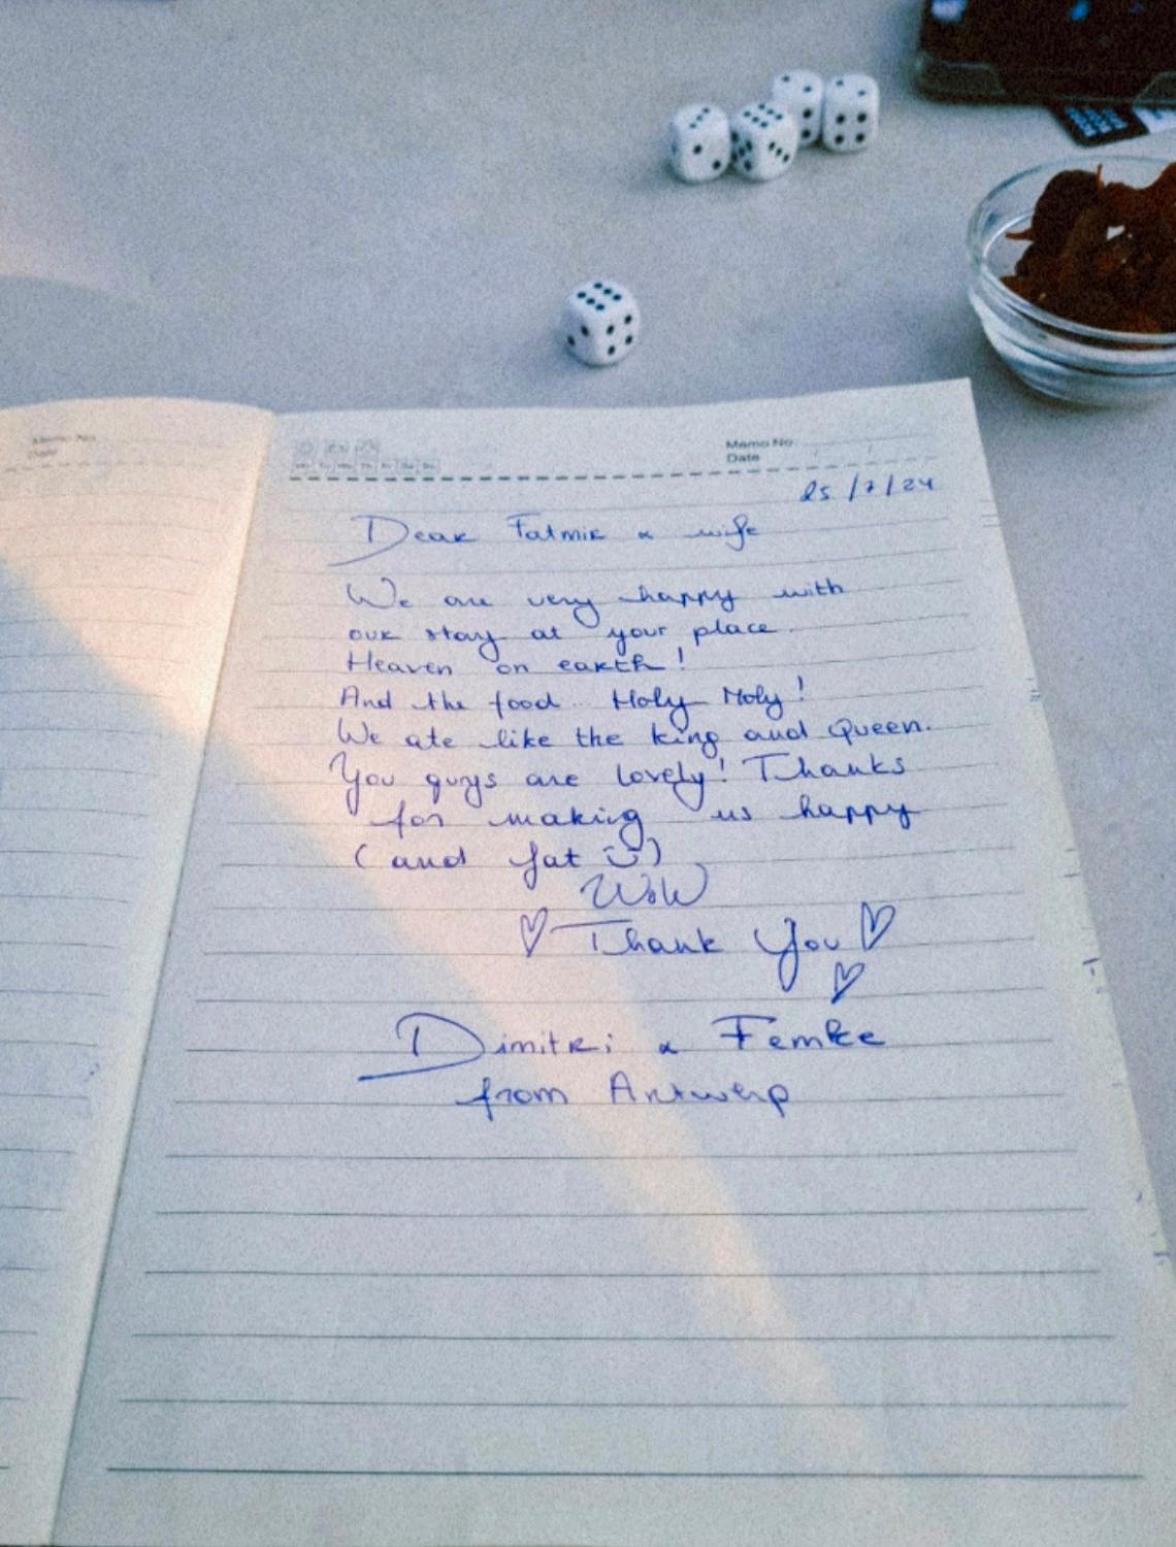 Memo No
Date
Memo No
Date
Mo Tu We Th Fr Sa Su
25/7/24
Dear Fatmir & wife
We are very happy with
our stay at your place.
Heaven on earth!
And the food.. Holy Moly!
We ate like the king and Queen.
You guys are lovely! Thanks
for making us happy
(and fat ☺)
WoW
♡ Thank You ♡
♡
Dimitri & Femke
from Antwerp